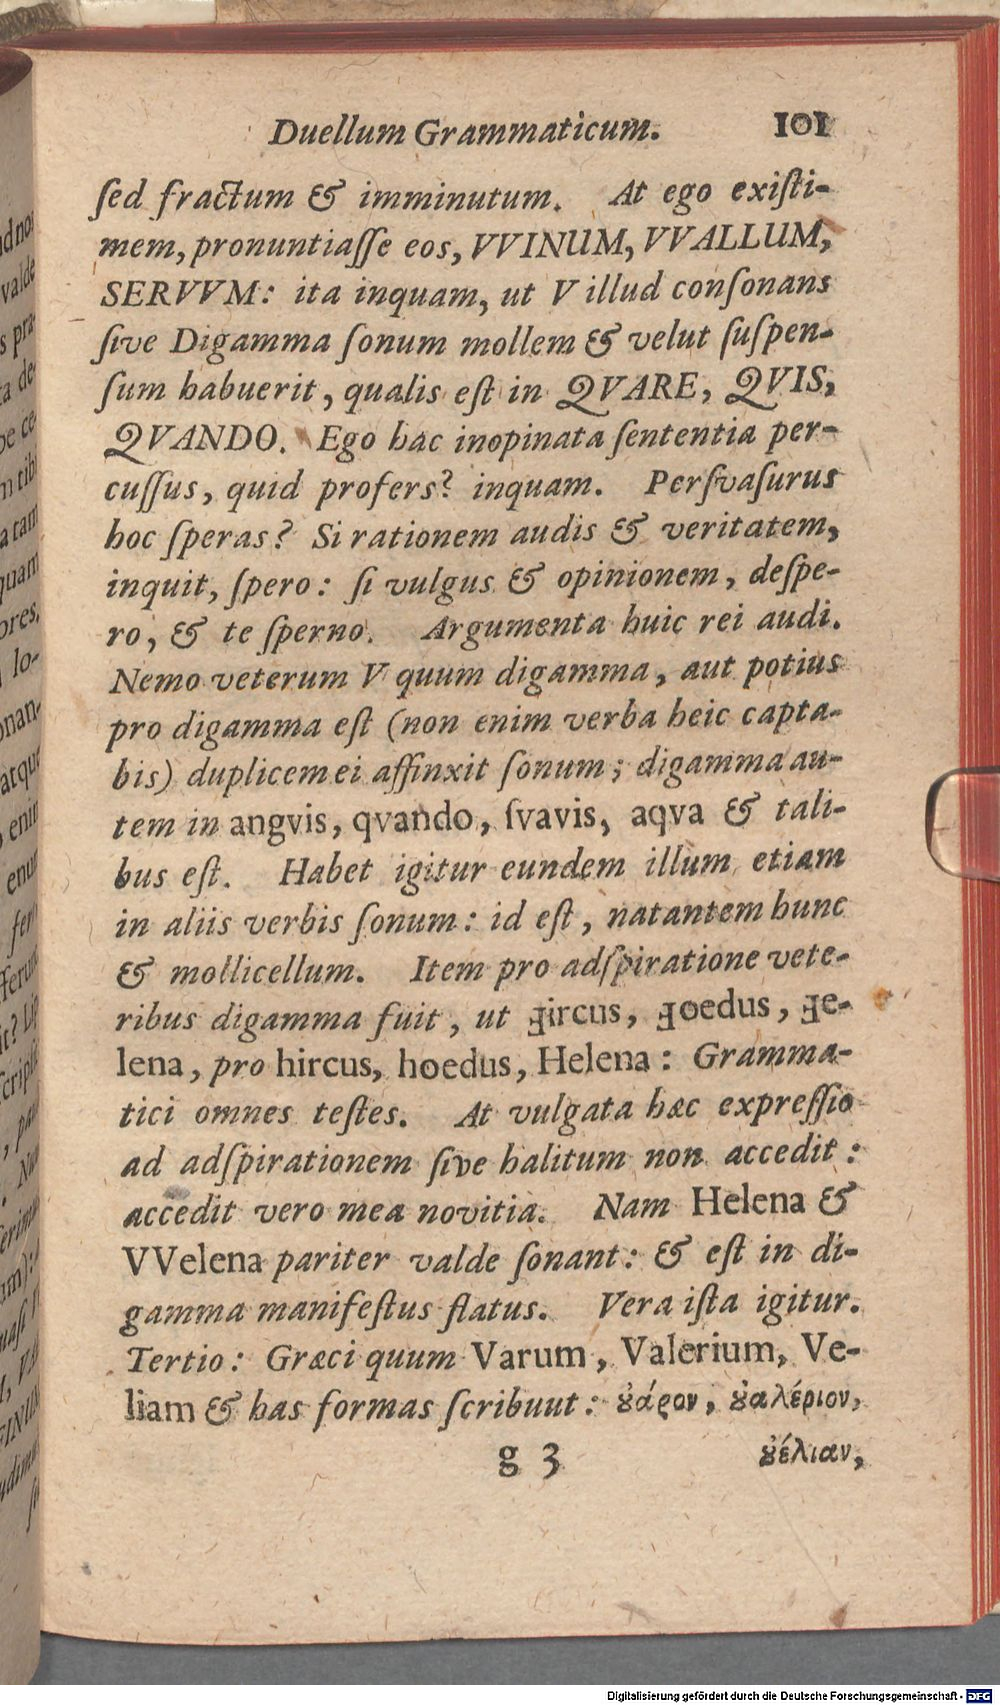 Duellum Grammaticum. 101
ſed fractum & imminutum. At ego exiſti-
mem, pronuntiaſſe eos, VVINUM, VVALLUM,
SERVVM: ita inquam, ut V illud conſonans
ſive Digamma ſonum mollem & velut ſuſpen-
ſum habuerit, qualis eſt in QVARE, QVIS,
QVANDO. Ego hac inopinata ſententia per-
cuſſus, quid profers? inquam. Perſvaſurus
hoc ſperas? Si rationem audis & veritatem,
inquit, ſpero: ſi vulgus & opinionem, deſpe-
ro, & te ſperno. Argumenta huic rei audi.
Nemo veterum V quum digamma, aut potius
pro digamma eſt (non enim verba heic capta-
bis) duplicem ei affinxit ſonum; digamma au-
tem in angvis, qvando, ſvavis, aqva & tali-
bus eſt. Habet igitur eundem illum etiam
in aliis verbis ſonum: id eſt, natantem hunc
& mollicellum. Item pro adſpiratione vete-
ribus digamma fuit, ut ⅎircus, ⅎoedus, ⅎe-
lena, pro hircus, hoedus, Helena: Gramma-
tici omnes teſtes. At vulgata hæc expreſſio
ad adſpirationem ſive halitum non accedit:
accedit vero mea novitia. Nam Helena &
VVelena pariter valde ſonant: & eſt in di-
gamma manifeſtus flatus. Vera iſta igitur.
Tertio: Græci quum Varum, Valerium, Ve-
liam & has formas ſcribuut: ȣάρον, ȣ̓αλέριον,
g 3 ȣ̓έλιαν,